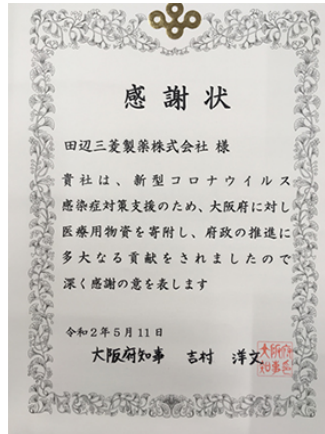 感謝状
田辺三菱製薬株式会社 様
貴社は、新型コロナウイルス
感染症対策支援のため、大阪府に対し
医療用物資を寄附し、府政の推進に
多大なる貢献をされましたので
深く感謝の意を表します
令和2年5月11日
大阪府知事 吉村 洋文